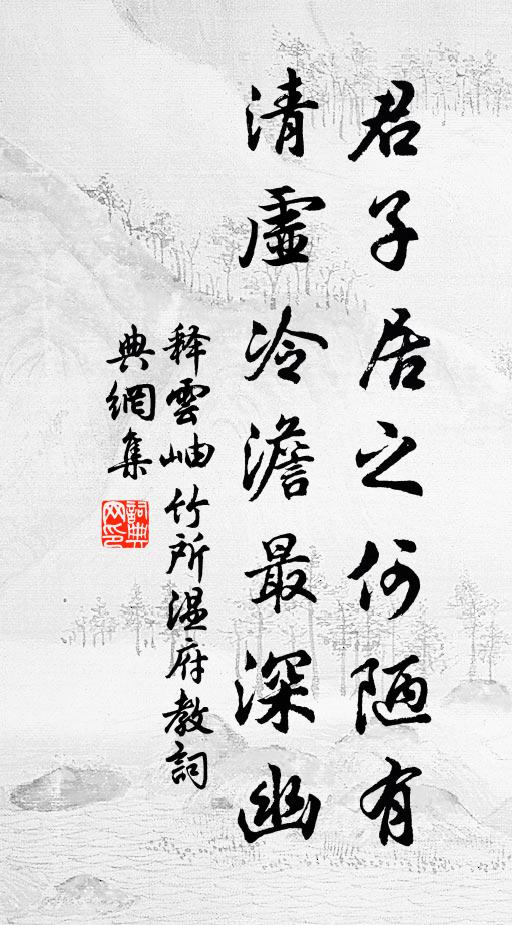 君子居之何陋有
清虛冷澹最深幽
释雲岫竹所溫府教詞
典網集
詞典
网印